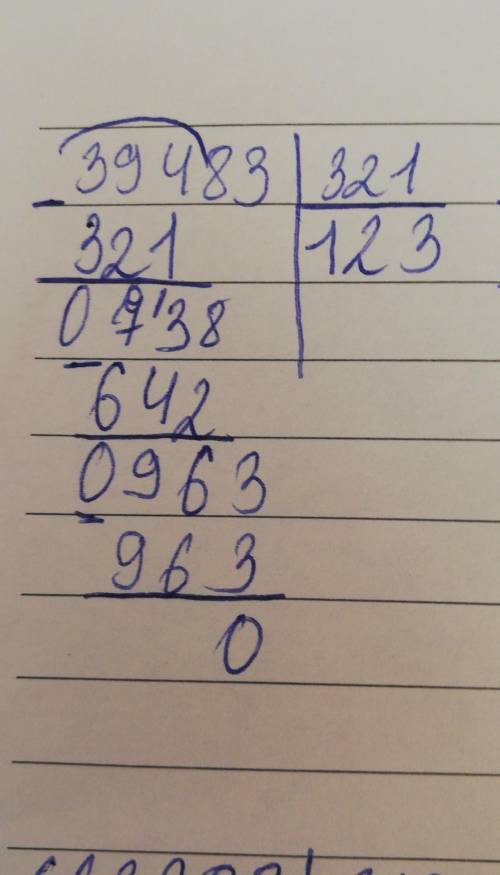 39483 321
321 123
0738
642
0963
963
0